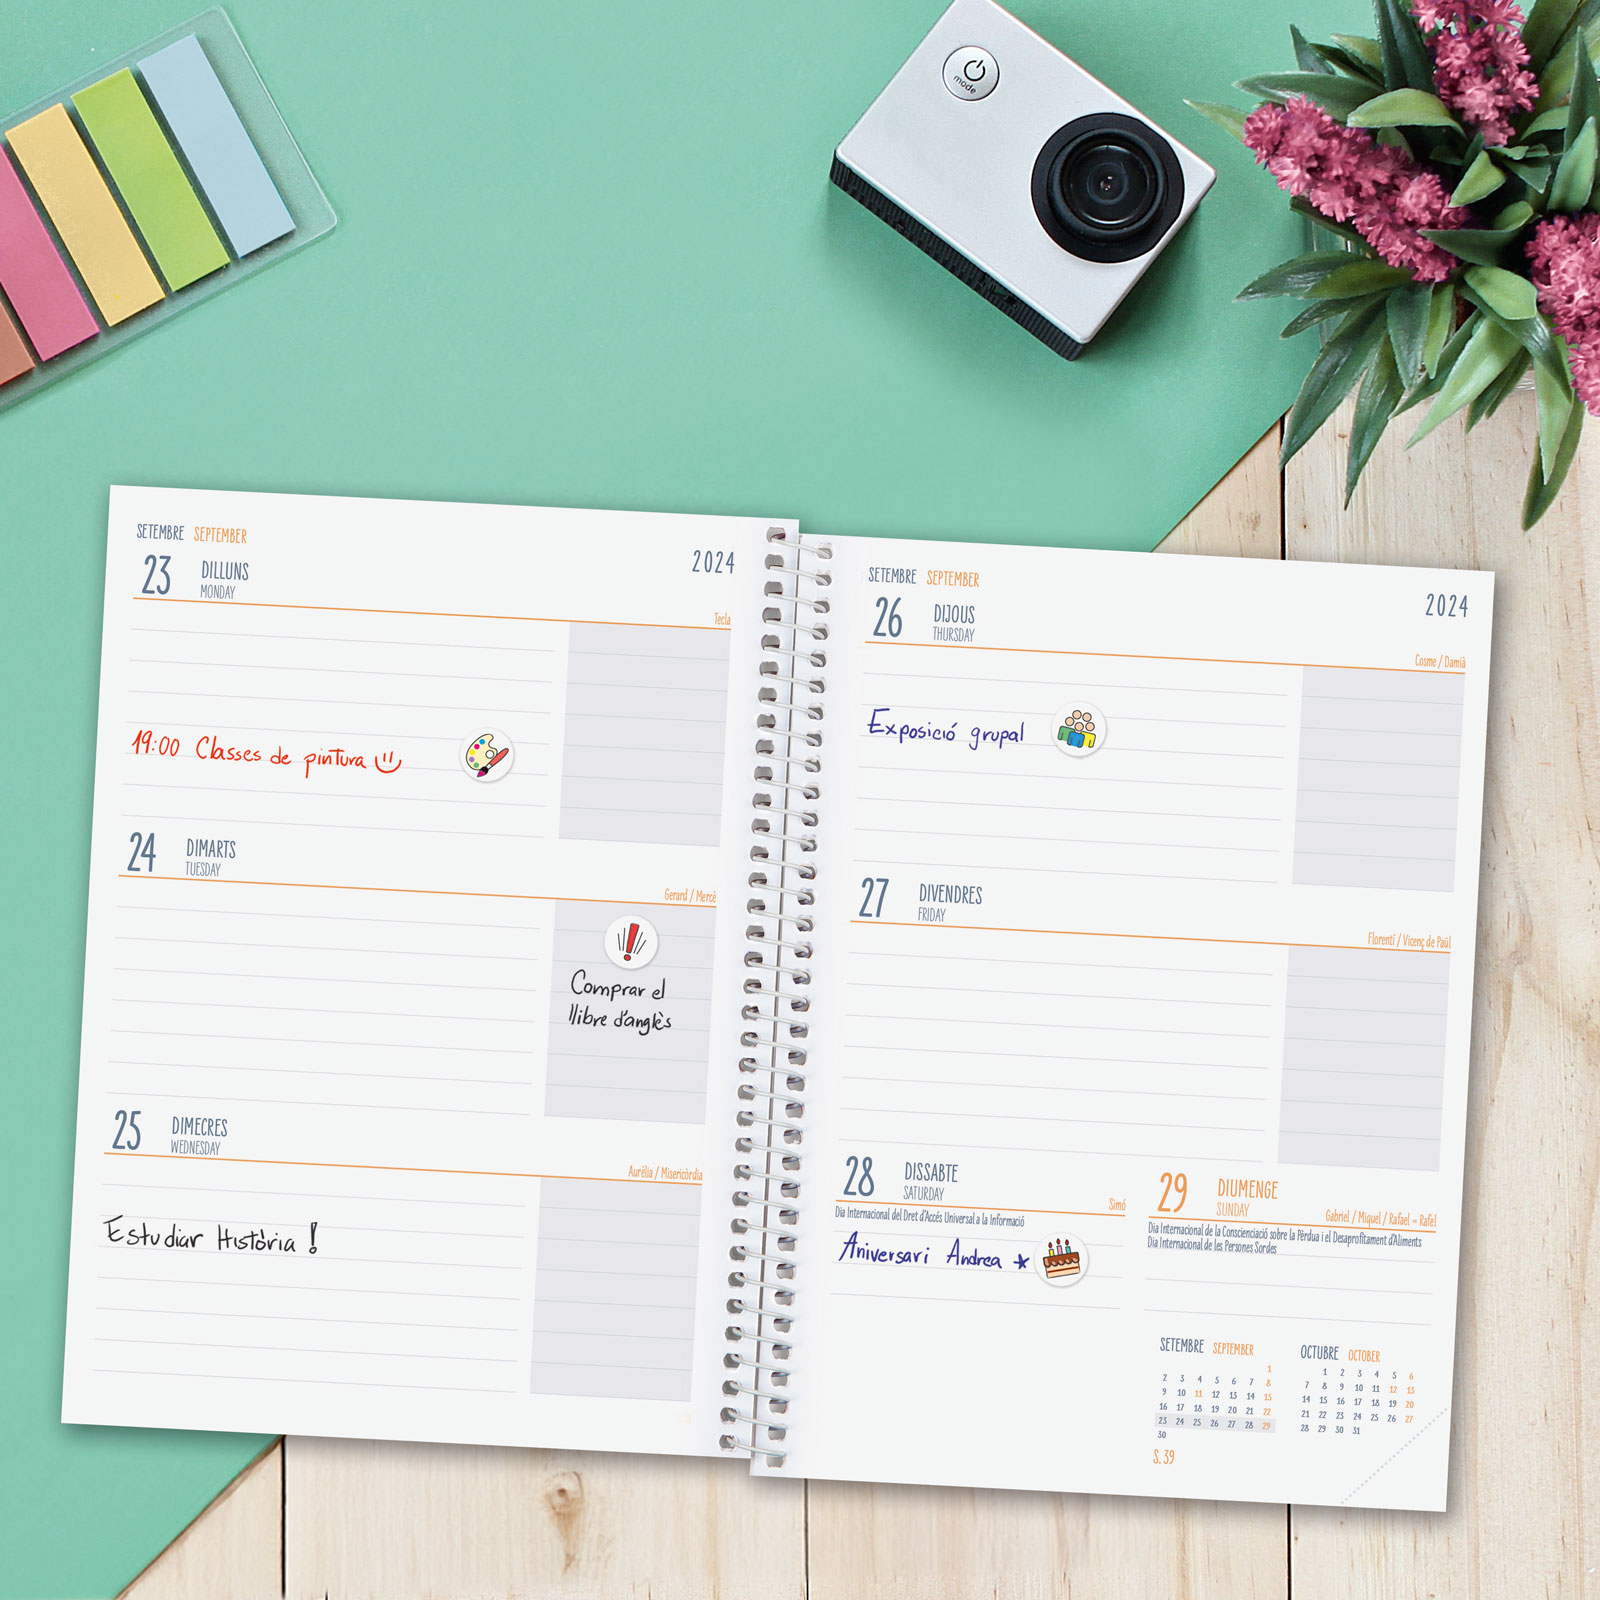 mode
SETEMBRE SEPTEMBER
2024
23 DILLUNS
MONDAY
Tecla
19:00 Classes de pintura
24 DIMARTS
TUESDAY
Gerard / Mercè
Comprar el
llibre d'anglès
25 DIMECRES
WEDNESDAY
Aurèlia / Misericòrdia
Estudiar Història !
SETEMBRE SEPTEMBER
2024
26 DIJOUS
THURSDAY
Cosme / Damià
Exposició grupal
27 DIVENDRES
FRIDAY
Florentí / Vicenç de Paül
28 DISSABTE
SATURDAY
Simó
Dia Internacional del Dret d'Accés Universal a la Informació
Aniversari Andrea
29 DIUMENGE
SUNDAY
Gabriel / Miquel / Rafael = Rafèl
Dia Internacional de la Conscienciació sobre la Pèrdua i el Desaprofitament d'Aliments
Dia Internacional de les Persones Sordes
SETEMBRE SEPTEMBER
1
2 3 4 5 6 7 8
9 10 11 12 13 14 15
16 17 18 19 20 21 22
23 24 25 26 27 28 29
30
S. 39
OCTUBRE OCTOBER
1 2 3 4 5 6
7 8 9 10 11 12 13
14 15 16 17 18 19 20
21 22 23 24 25 26 27
28 29 30 31